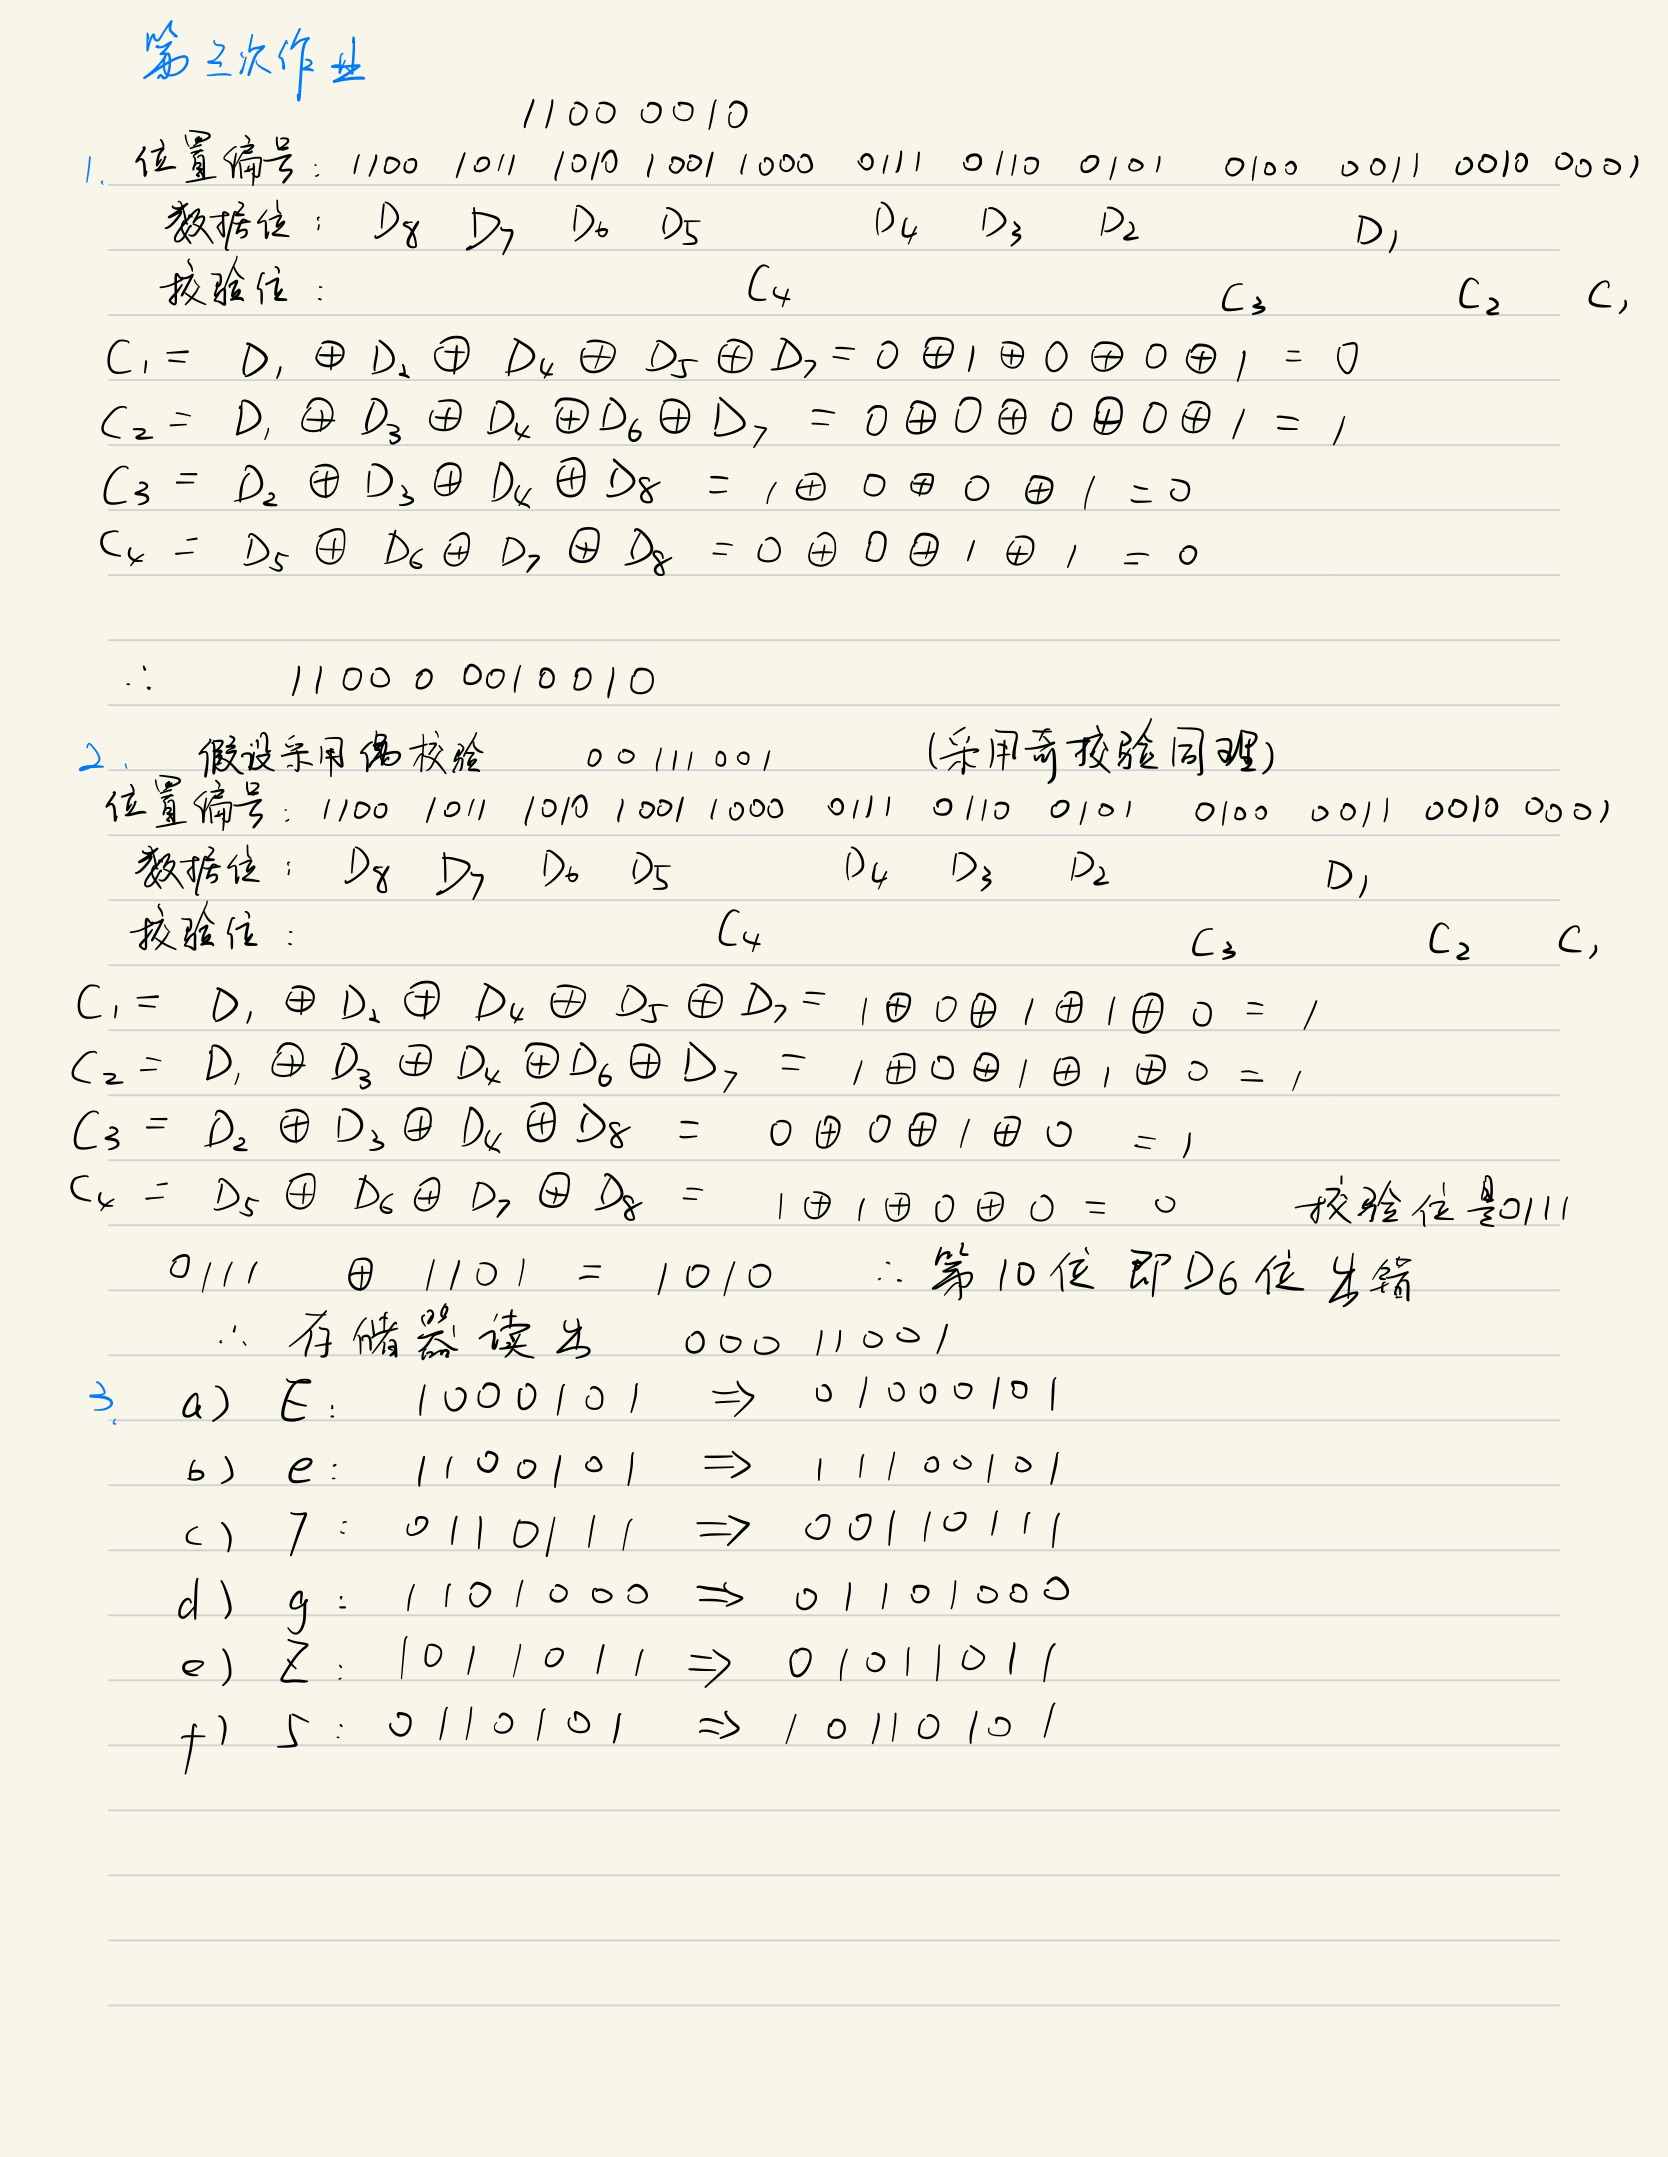 第三次作业
1100 0010
1. 位置编号: 1100 1011 1010 1001 1000 0111 0110 0101 0100 0011 0010 0001
数据位: D8 D7 D6 D5 D4 D3 D2 D1
校验位: C4 C3 C2 C1
C1 = D1 ⊕ D2 ⊕ D4 ⊕ D5 ⊕ D7 = 0 ⊕ 1 ⊕ 0 ⊕ 0 ⊕ 1 = 0
C2 = D1 ⊕ D3 ⊕ D4 ⊕ D6 ⊕ D7 = 0 ⊕ 0 ⊕ 0 ⊕ 0 ⊕ 1 = 1
C3 = D2 ⊕ D3 ⊕ D4 ⊕ D8 = 1 ⊕ 0 ⊕ 0 ⊕ 1 = 0
C4 = D5 ⊕ D6 ⊕ D7 ⊕ D8 = 0 ⊕ 0 ⊕ 1 ⊕ 1 = 0
∴ 1100 0 0010010
2. 假设采用偶校验 00111001 (采用奇校验同理)
位置编号: 1100 1011 1010 1001 1000 0111 0110 0101 0100 0011 0010 0001
数据位: D8 D7 D6 D5 D4 D3 D2 D1
校验位: C4 C3 C2 C1
C1 = D1 ⊕ D2 ⊕ D4 ⊕ D5 ⊕ D7 = 1 ⊕ 0 ⊕ 1 ⊕ 1 ⊕ 0 = 1
C2 = D1 ⊕ D3 ⊕ D4 ⊕ D6 ⊕ D7 = 1 ⊕ 0 ⊕ 1 ⊕ 1 ⊕ 0 = 1
C3 = D2 ⊕ D3 ⊕ D4 ⊕ D8 = 0 ⊕ 0 ⊕ 1 ⊕ 0 = 1
C4 = D5 ⊕ D6 ⊕ D7 ⊕ D8 = 1 ⊕ 1 ⊕ 0 ⊕ 0 = 0 校验位是0111
0111 ⊕ 1101 = 1010 ∴ 第10位即D6位出错
∴ 存储器读出 00011001
3. a) E: 1000101 ⇒ 01000101
b) e: 1100101 ⇒ 11100101
c) 7: 0110111 ⇒ 00110111
d) g: 1101000 ⇒ 01101000
e) Z: 1011011 ⇒ 01011011
f) 5: 0110101 ⇒ 10110101